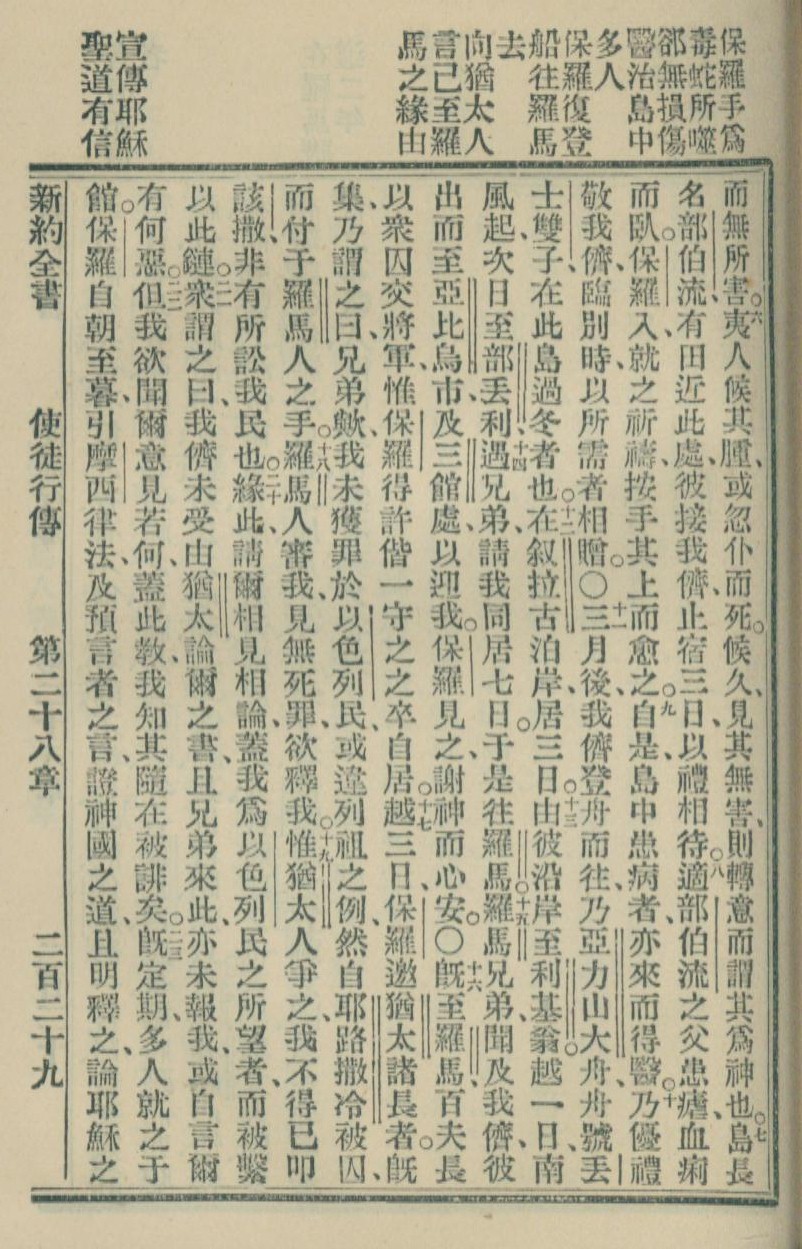 保羅手爲
毒蛇所噬
郤無損傷
醫治島中
多人
保羅復登
船往羅馬
去
向猶太人
言己至羅
馬之緣由
宣傳耶穌
聖道有信
而無所害。六夷人候其腫、或忽仆而死。候久、見其無害、則轉意而謂其爲神也。七島長
名部伯流、有田近此處、彼接我儕、止宿三日、以禮相待。八適部伯流之父患瘧、血痢
而臥。保羅入、就之祈禱、按手其上而愈之。九自是、島中患病者、亦來而得醫。十乃優禮
敬我儕、臨別時、以所需者相贈。〇十一三月後、我儕登舟而往、乃亞力山大舟、舟號丟
士雙子、在此島過冬者也。十二在叙拉古泊岸、居三日。十三由彼沿岸至利基翁。越一日、南
風起、次日至部丟利。十四遇兄弟、請我同居七日。于是往羅馬。十五羅馬兄弟、聞及我儕、彼
出而至亞比烏市、及三館處、以迎我。保羅見之、謝神而心安。〇十六旣至羅馬、百夫長
以衆囚交將軍、惟保羅得許偕一守之之卒自居。十七越三日、保羅邀猶太諸長者。旣
集、乃謂之曰、兄弟歟、我未獲罪於以色列民、或違列祖之例、然自耶路撒冷被囚、
而付于羅馬人之手。十八羅馬人審我、見無死罪、欲釋我。十九惟猶太人爭之、我不得已叩
該撒、非有所訟我民也。二十緣此、請爾相見相論、蓋我爲以色列民之所望者、而被繫
以此鏈。二一衆謂之曰、我儕未受由猶太論爾之書、且兄弟來此、亦未報我、或自言爾
有何惡。二二但我欲聞爾意見若何、蓋此敎、我知其隨在被誹矣。二三旣定期、多人就之于
館。保羅自朝至暮、引摩西律法、及預言者之言、證神國之道、且明釋之、論耶穌之
新約全書　使徒行傳　第二十八章　二百二十九